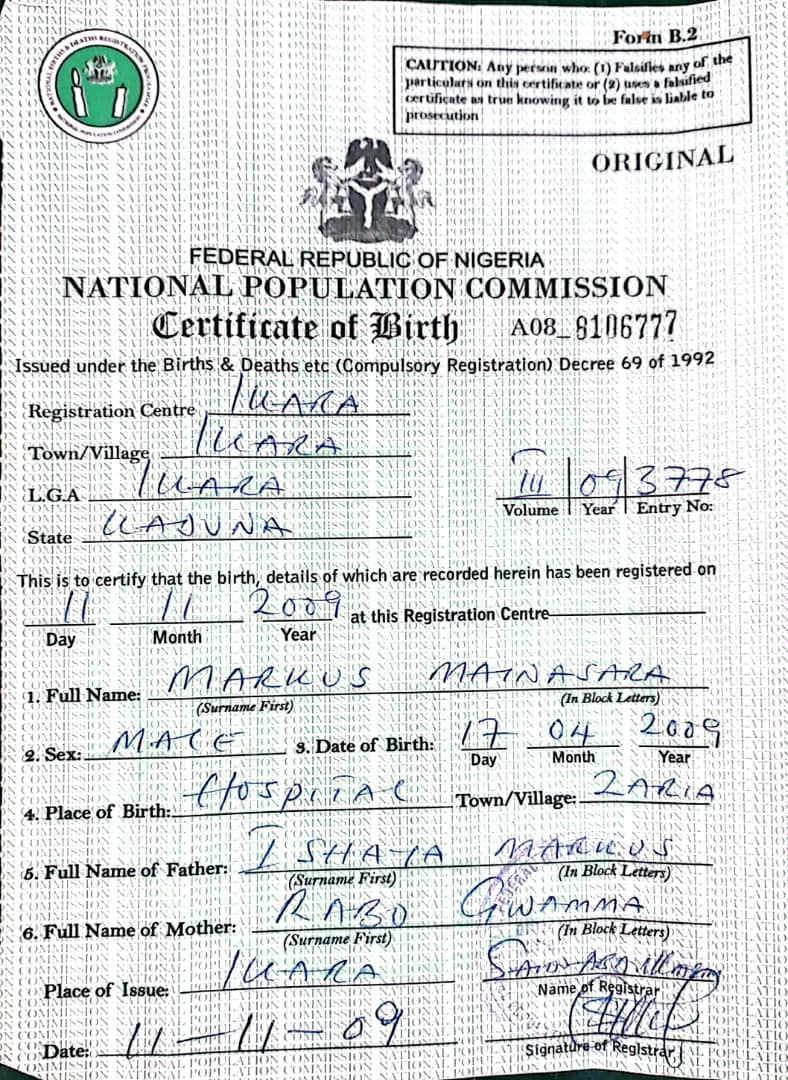 Form B.2
CAUTION: Any person who: (1) Falsifies any of the
particulars on this certificate or (2) uses a falsified
certificate as true knowing it to be false is liable to
prosecution
ORIGINAL
FEDERAL REPUBLIC OF NIGERIA
NATIONAL POPULATION COMMISSION
Certificate of Birth A08_8106777
Issued under the Births & Deaths etc (Compulsory Registration) Decree 69 of 1992
Registration Centre IKARA
Town/Village IKARA
L.G.A IKARA
III 09 3778
Volume Year Entry No:
State KADUNA
This is to certify that the birth, details of which are recorded herein has been registered on
11 11 2009 at this Registration Centre
Day Month Year
1. Full Name: MARKUS MAINASARA
(Surname First) (In Block Letters)
2. Sex: MALE 3. Date of Birth: 17 04 2009
Day Month Year
4. Place of Birth: HOSPITAL Town/Village: ZARIA
5. Full Name of Father: ISHAYA MARKUS
(Surname First) (In Block Letters)
6. Full Name of Mother: RABO GWAMMA
(Surname First) (In Block Letters)
Place of Issue: IKARA
Name of Registrar
Date: 11-11-09
Signature of Registrar